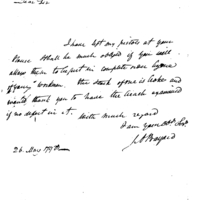 Dear Sir
I have left my pistols at your
House & shall be much obliged if you will
allow them to be put in complete order by one
of your workmen. The stock of one is broke and
would thank you to have the breach examined
if no defect in it. With much regard
I am your
J A Bayard
26 May 1797